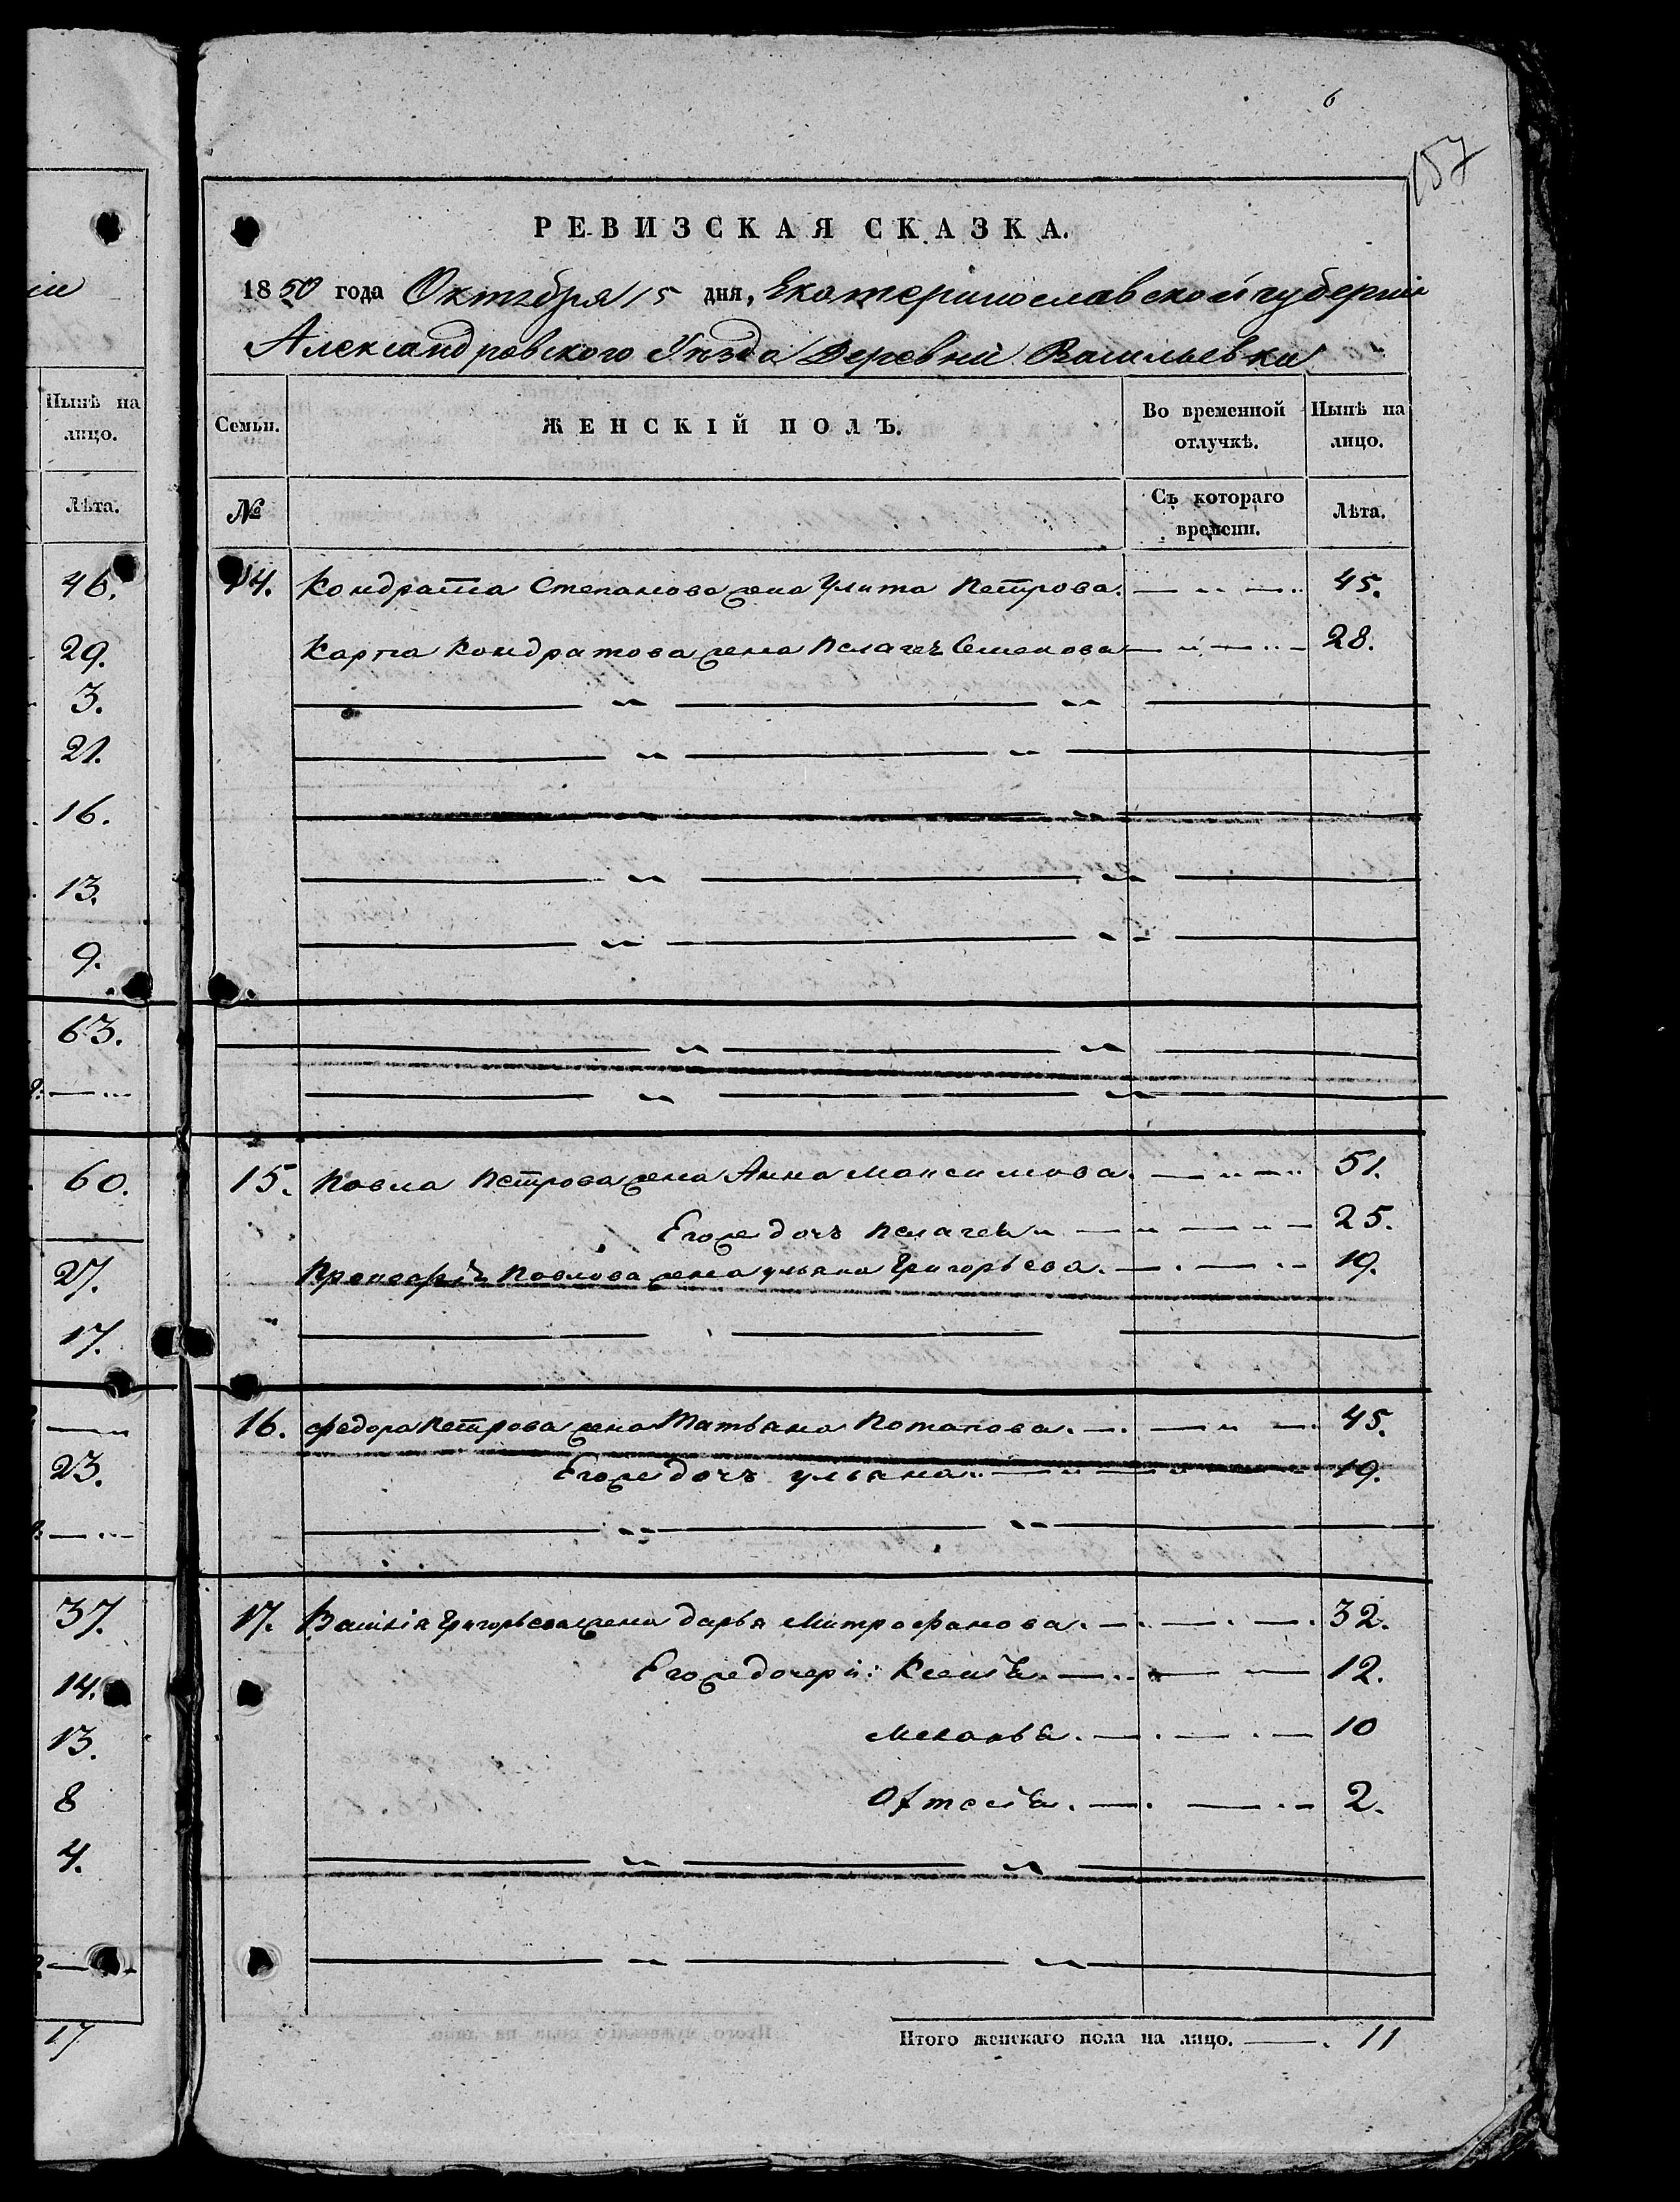 6
157
РЕВИЗСКАЯ СКАЗКА.
1850 года Октября 15 дня, Екатеринославской губерніи
Александровского Уѣзда Деревни Васильевки
Семьи. ЖЕНСКІЙ ПОЛЪ. Во временной отлучкѣ. Нынѣ на лицо.
№ Съ котораго времени. Лѣта.
14. Кондрата Степанова жена Улита Петрова. 45.
Карпа Кондратова жена Пелагея Семенова 28.
15. Павла Петрова жена Анна Максимова. 51.
Его же дочь Пелагея 25.
Павлова жена ульяна Григорьева. 19.
16. федора Петрова жена Татьяна Потапова. 45.
Его же дочь ульяна 19.
17. Василія Григорьева жена дарья Митрофанова. 32.
Его же дочери: Ксенія. 12.
Меланья. 10
2.
Итого женскаго пола на лицо. 11
Нынѣ на
лицо.
Лѣта.
46.
29.
3.
21.
16.
13.
9.
63.
60.
27.
17.
23.
37.
14.
13.
8
4.
17